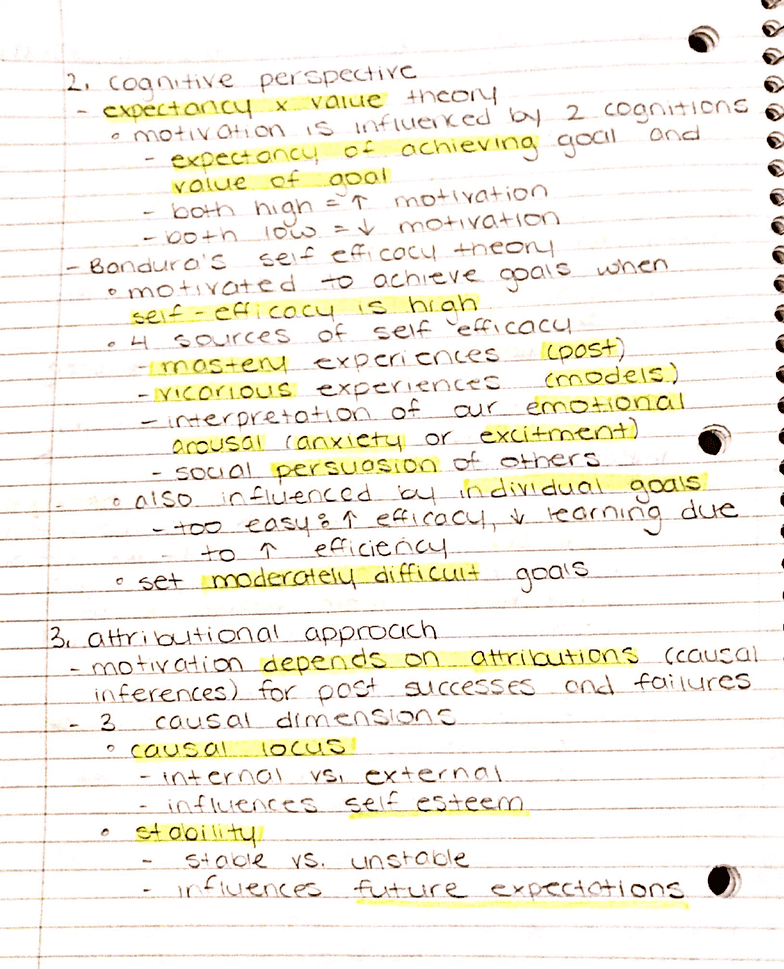 2. cognitive perspective
- expectancy x value theory
◦ motivation is influenced by 2 cognitions
- expectancy of achieving goal and
value of goal
- both high = ↑ motivation
- both low = ↓ motivation
- Bandura's self efficacy theory
◦ motivated to achieve goals when
self-efficacy is high
◦ 4 sources of self efficacy
- mastery experiences (past)
- vicarious experiences (models)
- interpretation of our emotional
arousal (anxiety or excitment)
- social persuasion of others
◦ also influenced by individual goals
- too easy: ↑ efficacy, ↓ learning due
to ↑ efficiency
◦ set moderately difficult goals
3. attributional approach
- motivation depends on attributions (causal
inferences) for past successes and failures
- 3 causal dimensions
◦ causal locus
- internal vs. external
- influences self esteem
◦ stability
- stable vs. unstable
- influences future expectations